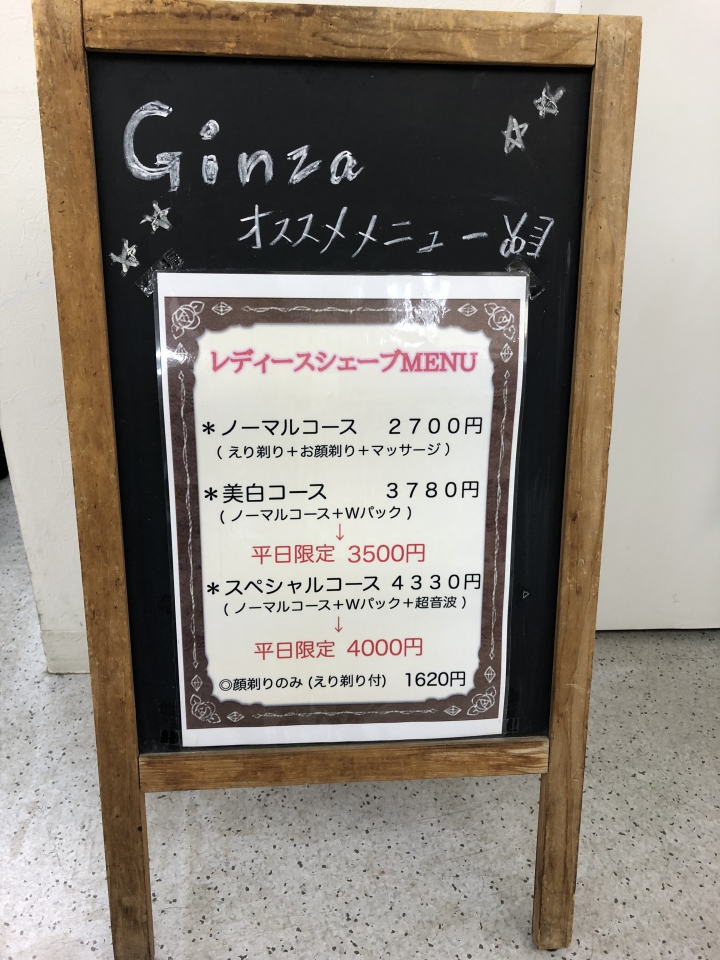 Ginza
オススメメニュー
レディースシェーブMENU
＊ノーマルコース　２７００円
（えり剃り＋お顔剃り＋マッサージ）
＊美白コース　３７８０円
（ノーマルコース＋Wパック）
↓
平日限定 3500円
＊スペシャルコース ４３３０円
（ノーマルコース＋Wパック＋超音波）
↓
平日限定 4000円
◎顔剃りのみ (えり剃り付)　1620円